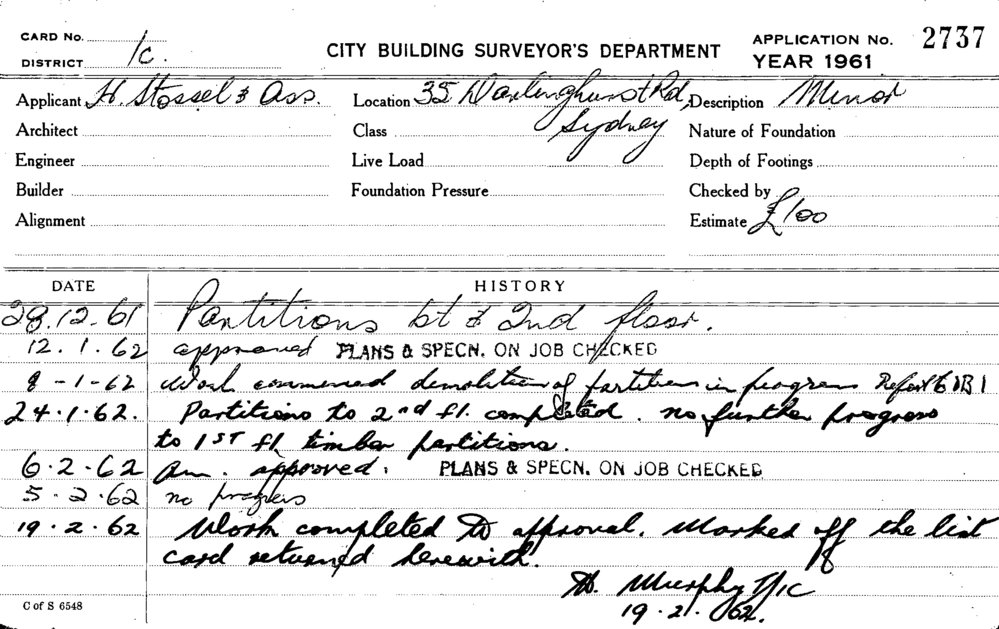 CARD No.
DISTRICT 1c.
CITY BUILDING SURVEYOR'S DEPARTMENT
APPLICATION No. 2737
YEAR 1961
Applicant H. Stossel & Ass. Location 35 Darlinghurst Rd, Description Minor
Sydney
Architect Class Nature of Foundation
Engineer Live Load Depth of Footings
Builder Foundation Pressure Checked by
Alignment Estimate £100
DATE HISTORY
28.12.61 Partitions 1st & 2nd floor.
12.1.62 approved PLANS & SPECN. ON JOB CHECKED
9-1-62 Work commenced demolition of partitions in progress
24.1.62. Partitions to 2nd fl. completed. no further progress
to 1ST fl. timber partitions.
6.2.62 Am. approved. PLANS & SPECN. ON JOB CHECKED
5.2.62 no progress
19.2.62 Work completed to approval. Marked off the list
card returned herewith.
Murphy 1c
19.2.62.
C of S 6548